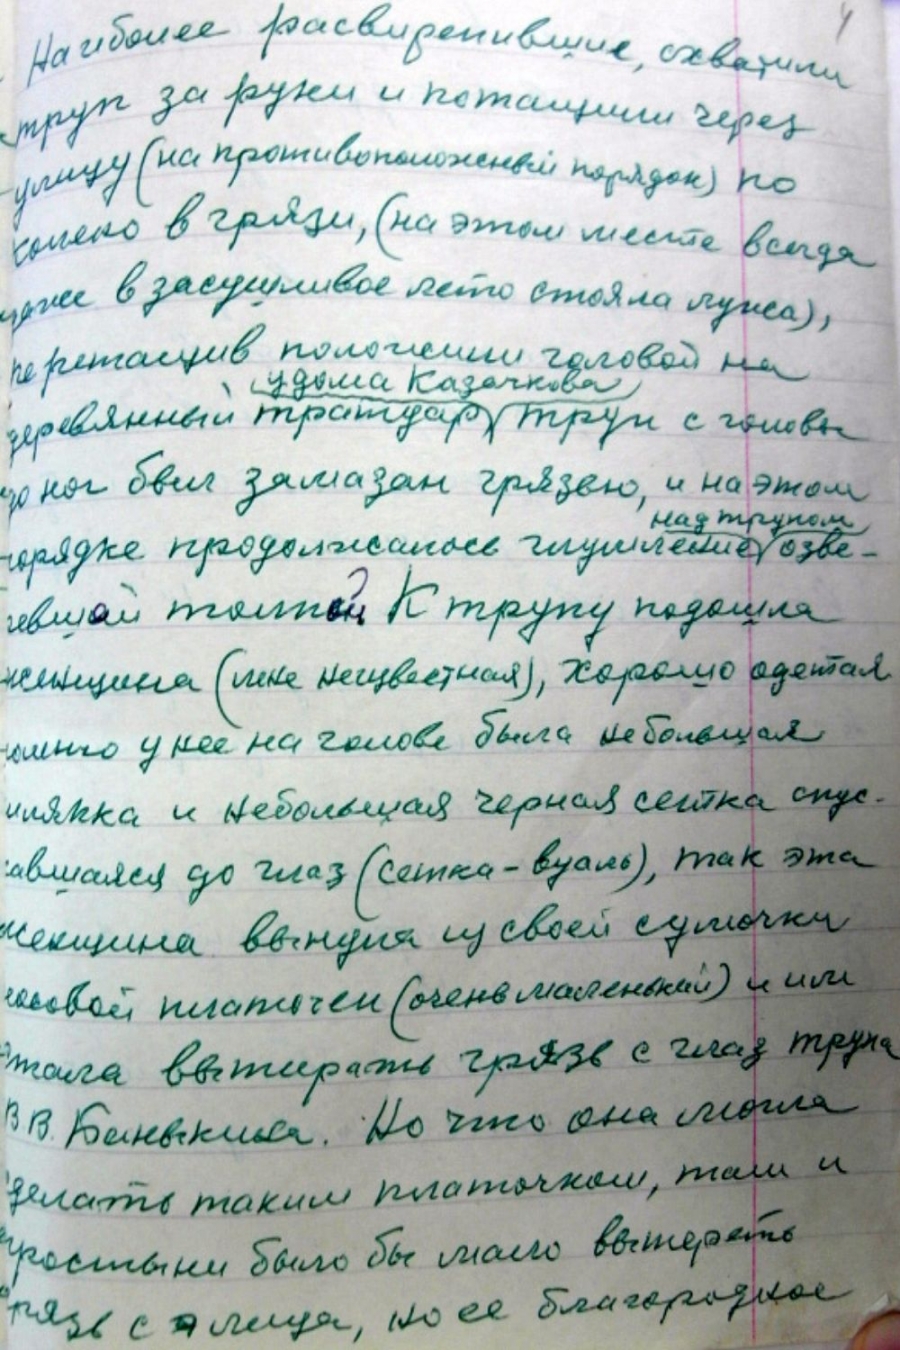 4
Наиболее расвирепившие, схватили
труп за руки и потащили через
улицу (на противоположный порядок) по
колено в грязи, (на этом месте всегда
даже в засушливое лето стояла лужа),
перетащив положили головой на
у дома Казачкова
деревянный тратуар, труп с головы
до ног был замазан грязью, и на этом
над трупом
порядке продолжалось глумление озве-
ревшой толпой К трупу подошла
женщина (мне неизвестная), хорошо одетая
помню у нее на голове была небольшая
шляпка и небольшая черная сетка спус-
кавшаяся до глаз (сетка-вуаль), так эта
женщина вынула из своей сумочки
носовой платочек (очень маленький) и им
стала вытирать грязь с глаз трупа
В.В. Баныкина. Но что она могла
сделать таким платочком, там и
простыни было бы мало вытереть
грязь с лица, но ее благородное